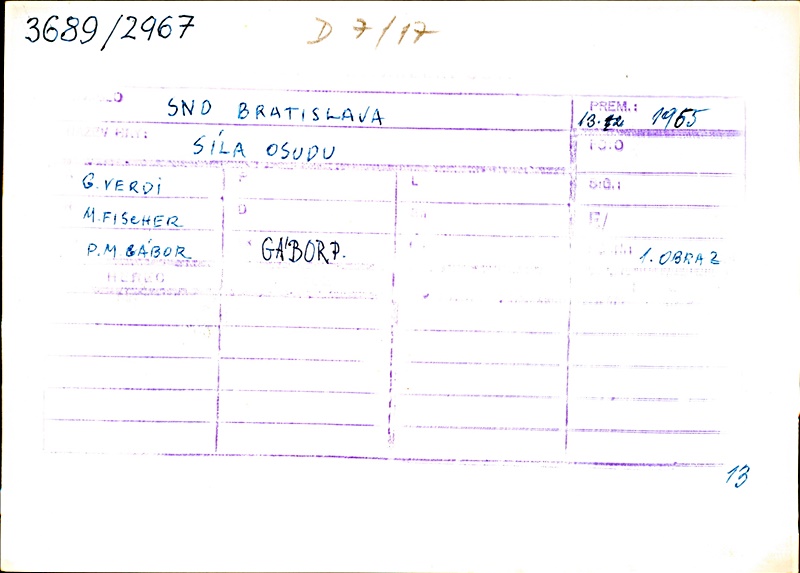 3689/2967 D 7/17
SND BRATISLAVA PREM.: 13.12 1965
SÍLA OSUDU
G. VERDI P L SIG.:
M. FISCHER D
P.M. GÁBOR GÁBOR P. 1. OBRAZ
13